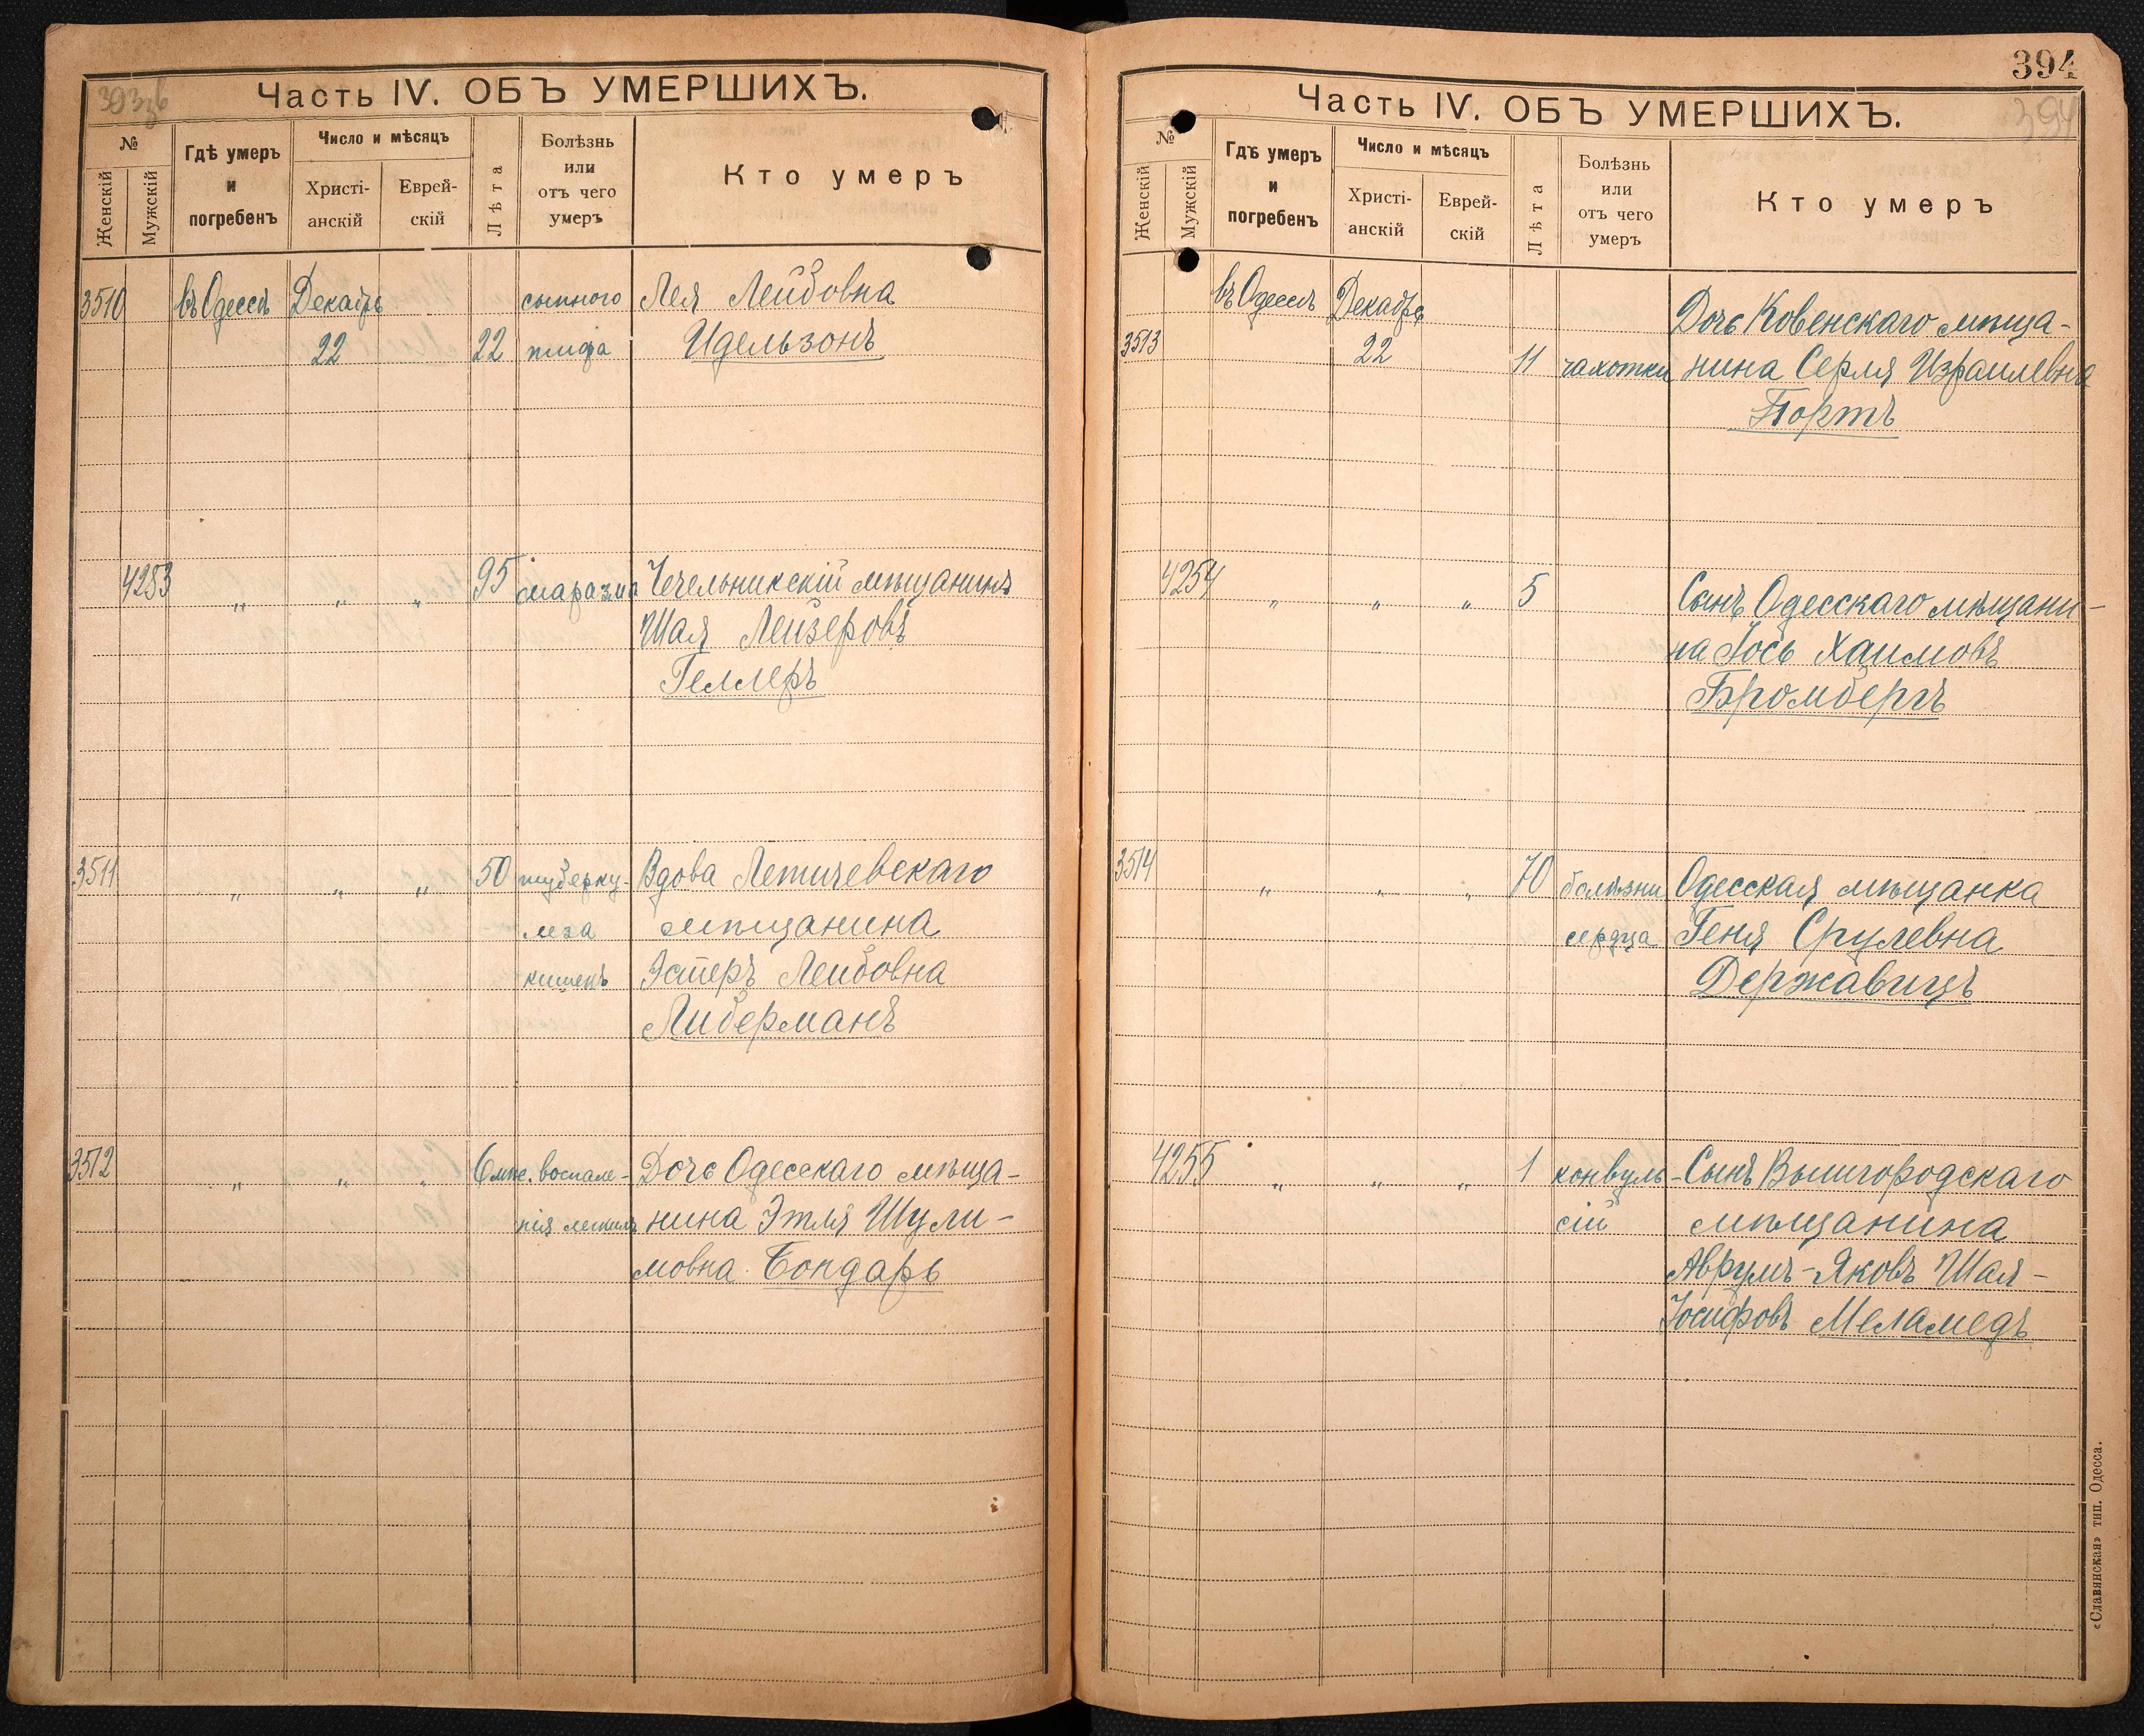 393 об
Часть IV. ОБЪ УМЕРШИХЪ.
№
Женскій
Мужскій
Гдѣ умеръ
и
погребенъ
Число и мѣсяцъ
Христі-
анскій
Еврей-
скій
Лѣта
Болѣзнь
или
отъ чего
умеръ
Кто умеръ
3510 въ Одессѣ Декабрь сыпного Лея Лейбовна
22 22 тифа Идельзонъ
4253 " " " 95 маразма Чечельникскій мѣщанинъ
Шая Лейзеровъ
Геллеръ
3511 " " " 50 туберку- Вдова Летичевскаго
леза мѣщанина
кишекъ Эстеръ Лейбовна
Либерманъ
3512 " " " 6 мѣс. воспале- Дочь Одесскаго мѣща-
нія легкихъ нина Этля Шули-
мовна Бондарь
394
394
Часть IV. ОБЪ УМЕРШИХЪ.
№
Женскій
Мужскій
Гдѣ умеръ
и
погребенъ
Число и мѣсяцъ
Христі-
анскій
Еврей-
скій
Лѣта
Болѣзнь
или
отъ чего
умеръ
Кто умеръ
въ Одессѣ Декабрь Дочь Ковенскаго мѣща-
3513 22 11 чахотки нина Серля Израилевна
Портъ
4254 " " " 5 Сынъ Одесскаго мѣщани-
на Іось Хаимовъ
Бромбергъ
3514 " " " 70 болѣзни Одесская мѣщанка
сердца Геня Срулевна
Державицъ
4255 " " " 1 конвуль- Сынъ Вышгородскаго
сій мѣщанина
Аврумъ-Яковъ Шая-
Іосифовъ Меламедъ
«Славянская» тип. Одесса.